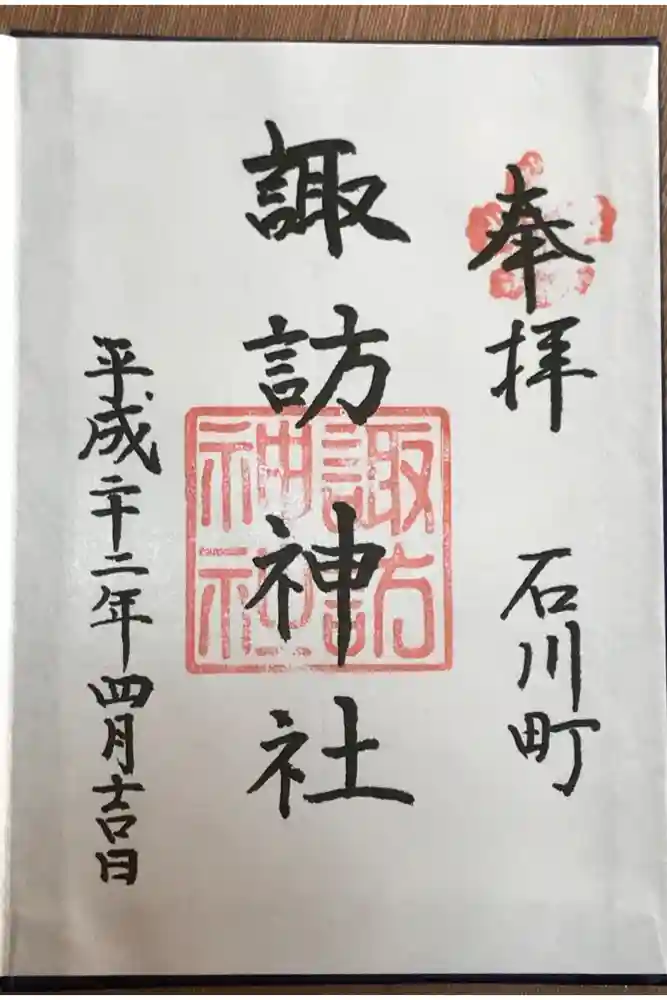 奉拝 石川町
諏訪神社
諏訪
神社
平成二十二年四月吉日